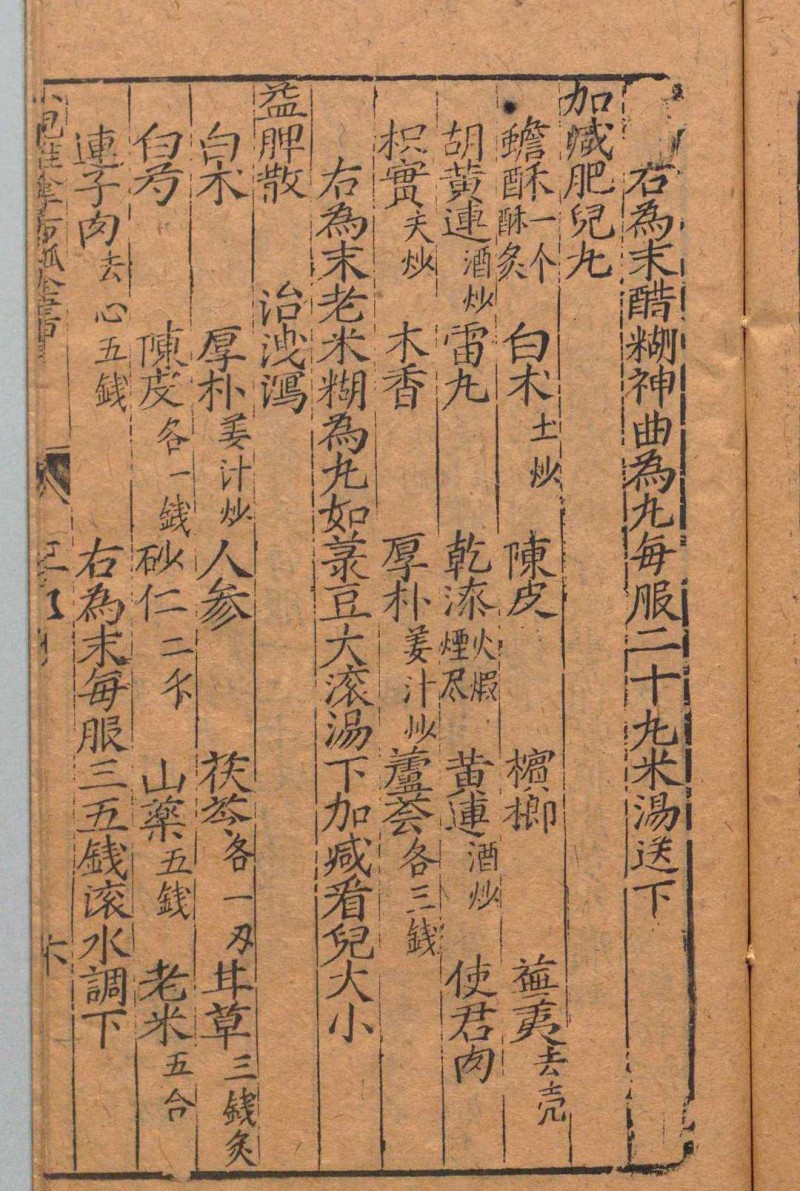 右為末醋糊神曲為丸每服二十九米湯送下
加减肥兒丸
蟾酥一个酥炙 白术土炒 陳皮 檳榔 蕪荑去壳
胡黄連酒炒 雷丸 乾漆火煆煙尽 黄連酒炒 使君肉
枳實夫炒 木香 厚朴姜汁炒 蘆薈各三錢
右為末老米糊為丸如菉豆大滚湯下加减看兒大小
益脾散 治洩瀉
白术 厚朴姜汁炒 人参 茯苓各一刄 甘草三錢炙
白芍 陳皮各一錢 砂仁二分 山藥五錢 老米五合
連子肉去心五錢 右為末每服三五錢滚水調下
小兒推拿方脉全書